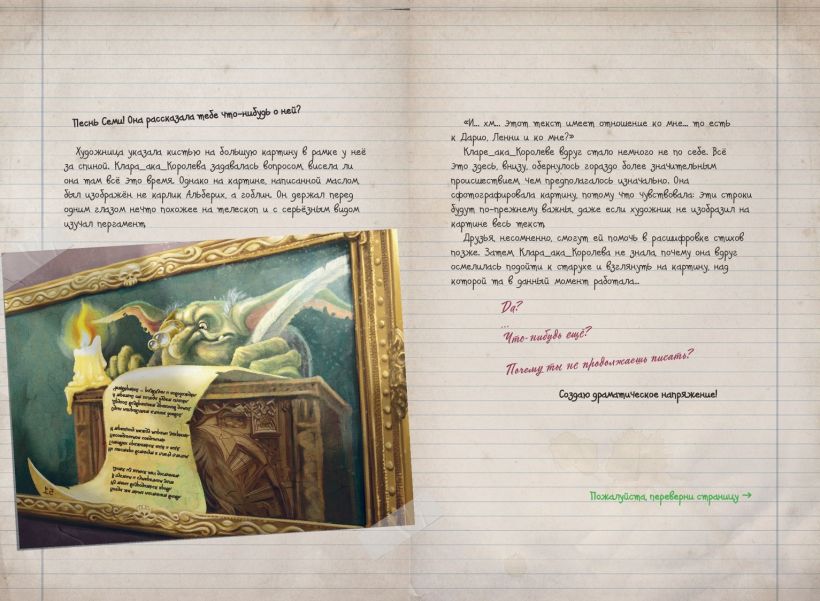 Песнь Семи! Она рассказала тебе что-нибудь о ней?
Художница указала кистью на большую картину в рамке у неё
за спиной. Клара_ака_Королева задавалась вопросом висела ли
она там всё это время. Однако на картине, написанной маслом,
был изображён не карлик Альберих, а гоблин. Он держал перед
одним глазом нечто похожее на телескоп и с серьёзным видом
изучал пергамент.
«И... хм... этот текст имеет отношение ко мне... то есть
к Дарио, Ленни и ко мне?»
Кларе_ака_Королеве вдруг стало немного не по себе. Всё
это здесь, внизу, обернулось гораздо более значительным
происшествием, чем предполагалось изначально. Она
сфотографировала картину, потому что чувствовала: эти строки
будут по-прежнему важны, даже если художник не изобразил на
картине весь текст.
Друзья, несомненно, смогут ей помочь в расшифровке стихов
позже. Затем Клара_ака_Королева не знала почему она вдруг
осмелилась подойти к старухе и взглянуть на картину, над
которой та в данный момент работала...
Да?
...
Что-нибудь ещё?
Почему ты не продолжаешь писать?
Создаю драматическое напряжение!
Пожалуйста, переверни страницу →